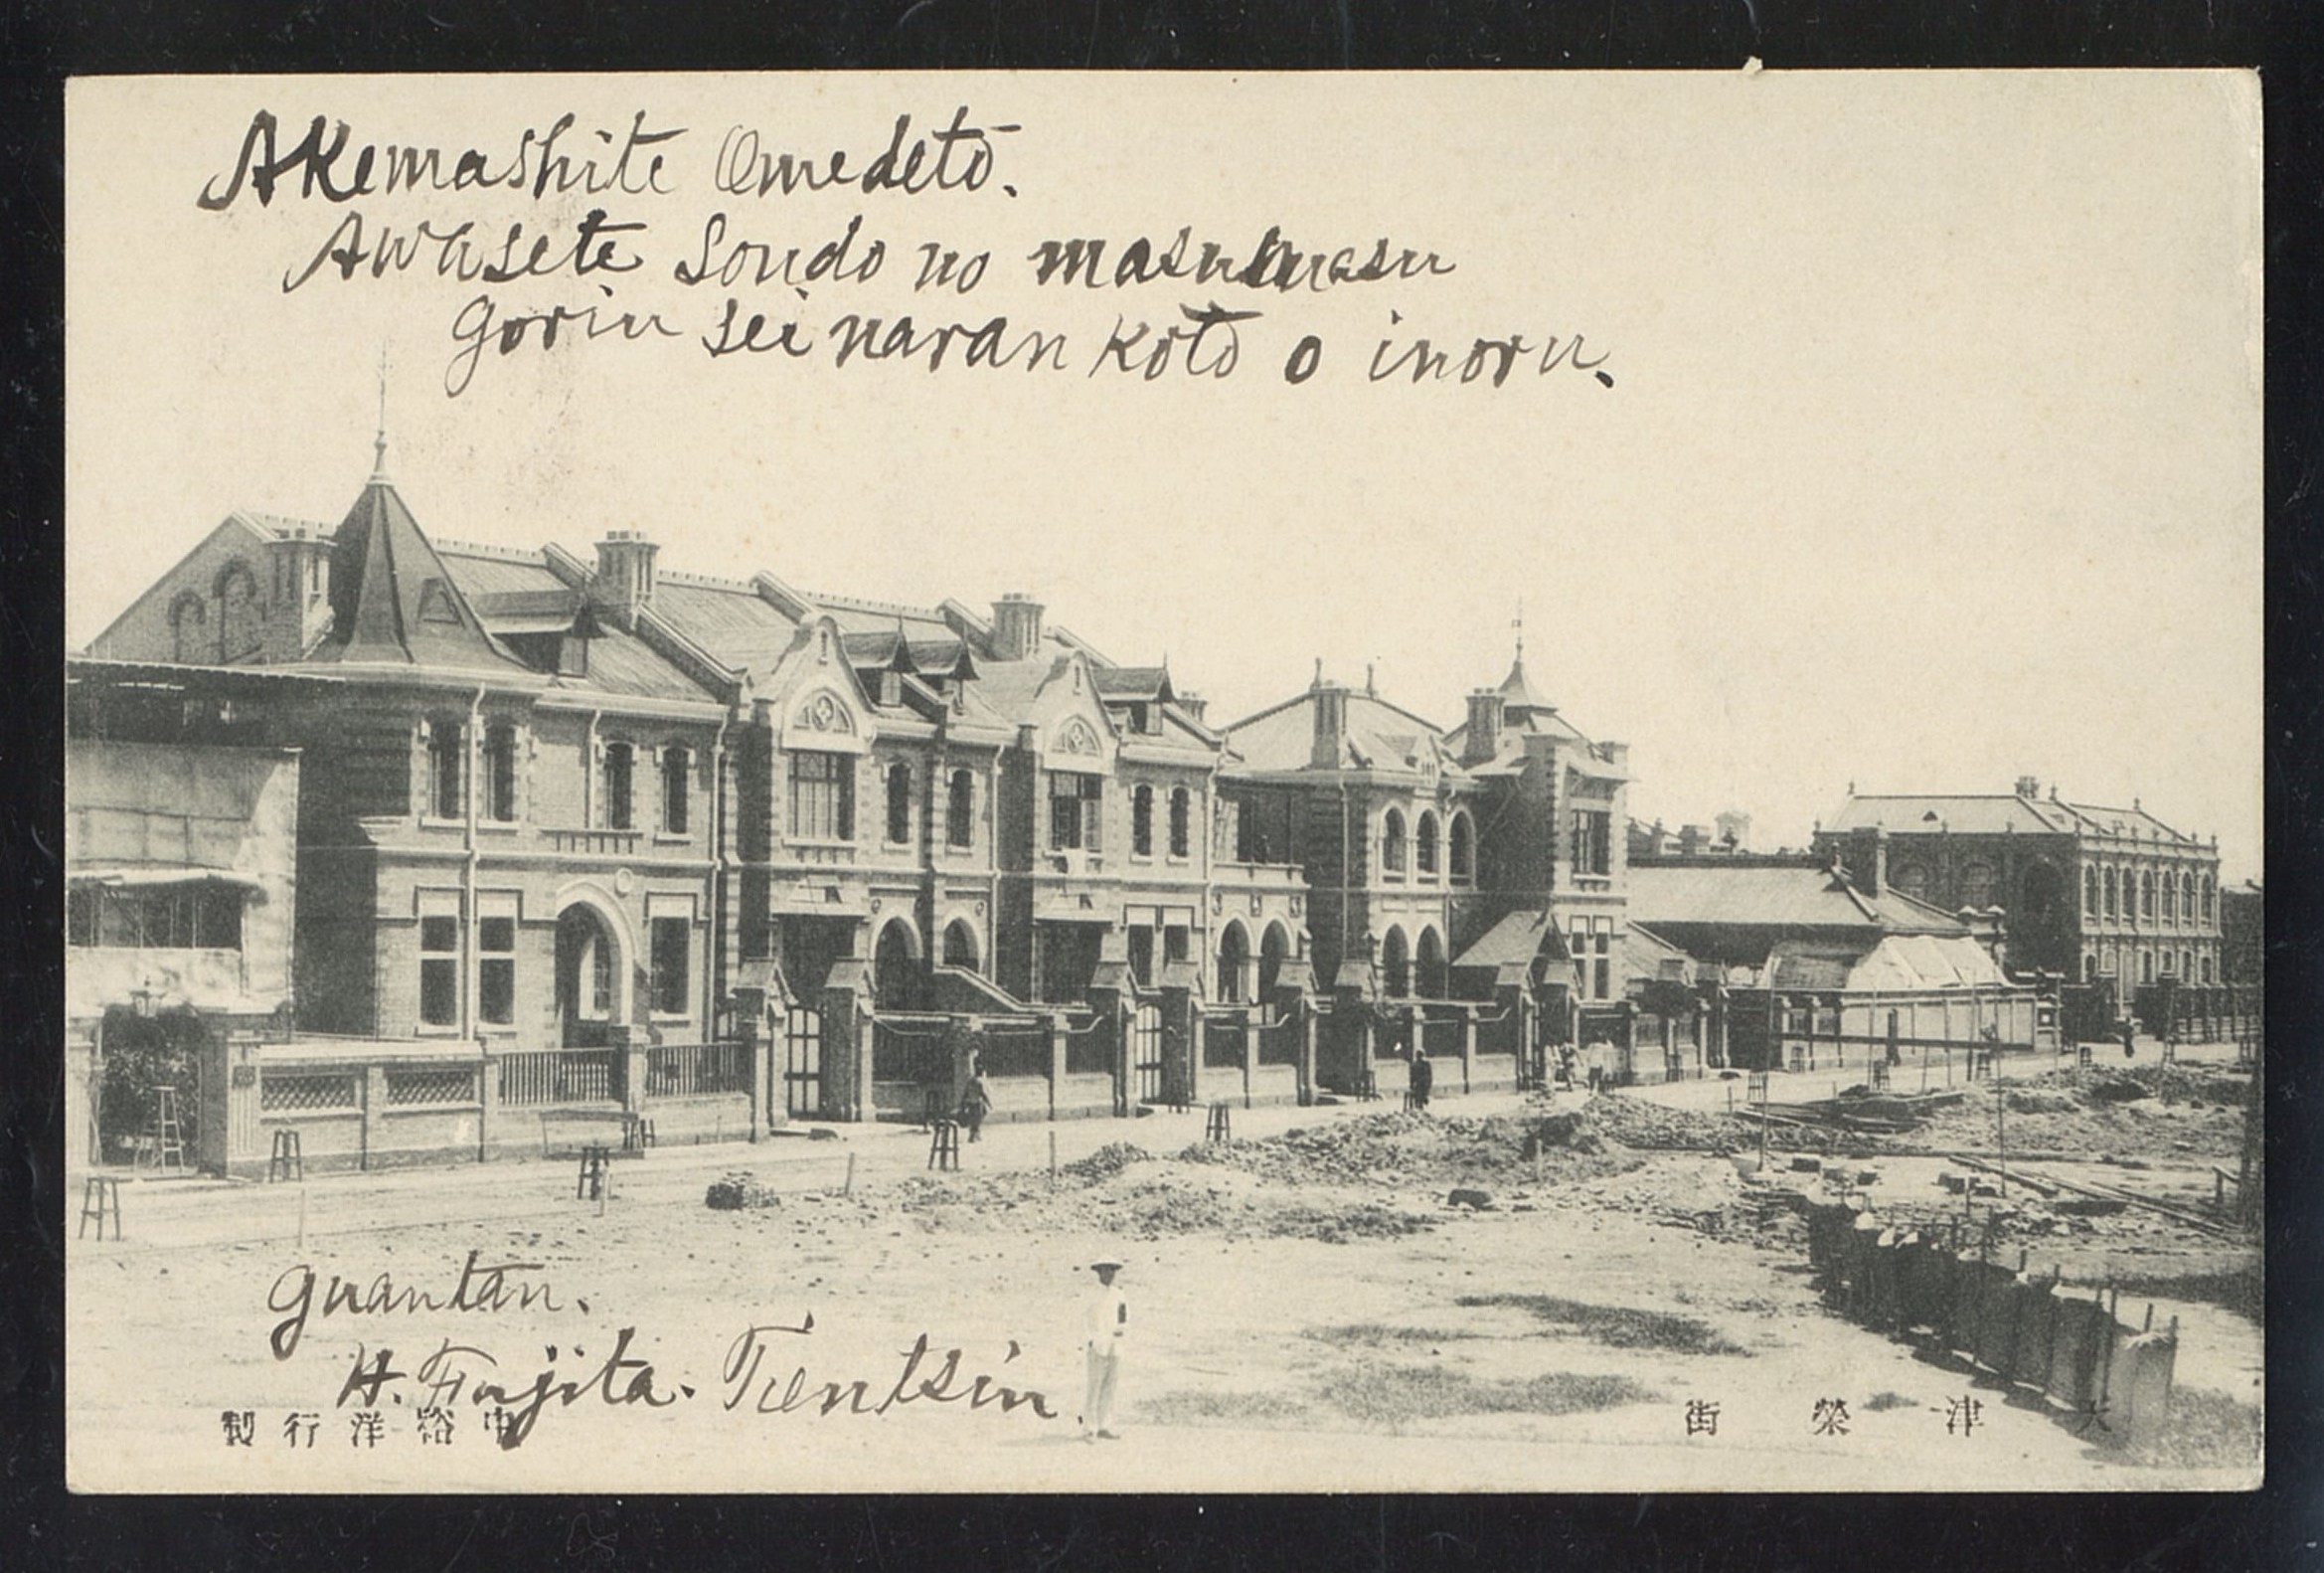 Akemashite Omedetō.
Awasete Soudo no masumasu
goriu sei naran kotō o inoru.
guantan.
H. Fujita. Tientsin.
製行洋裕中
街榮津天